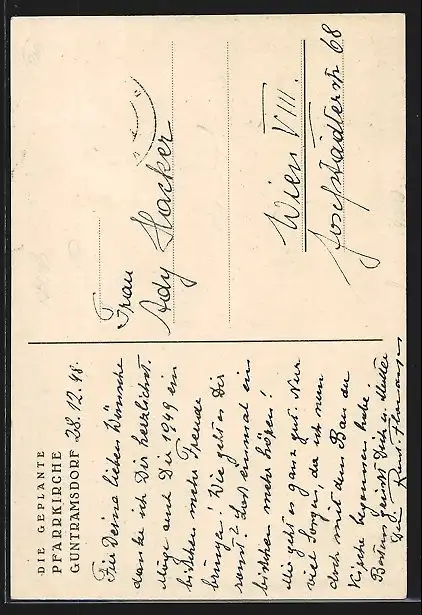 DIE GEPLANTE
PFARRKIRCHE
GUNTRAMSDORF 28.12.48.
Für Deine lieben Wünsche
danke ich Dir herzlichst.
Möge auch Dir 1949 ein
bisschen mehr Freude
bringen! Wie geht es Dir
sonst? Lass einmal ein
bisschen mehr hören!
Mir geht es ganz gut. Nur
viel Sorgen, da ich nun
doch mit dem Bau der
Kirche begonnen habe.
Bestens grüsst Dich u. Mutter
Frau
Ady Hacker
Wien VIII.
Josefstädterstr 68